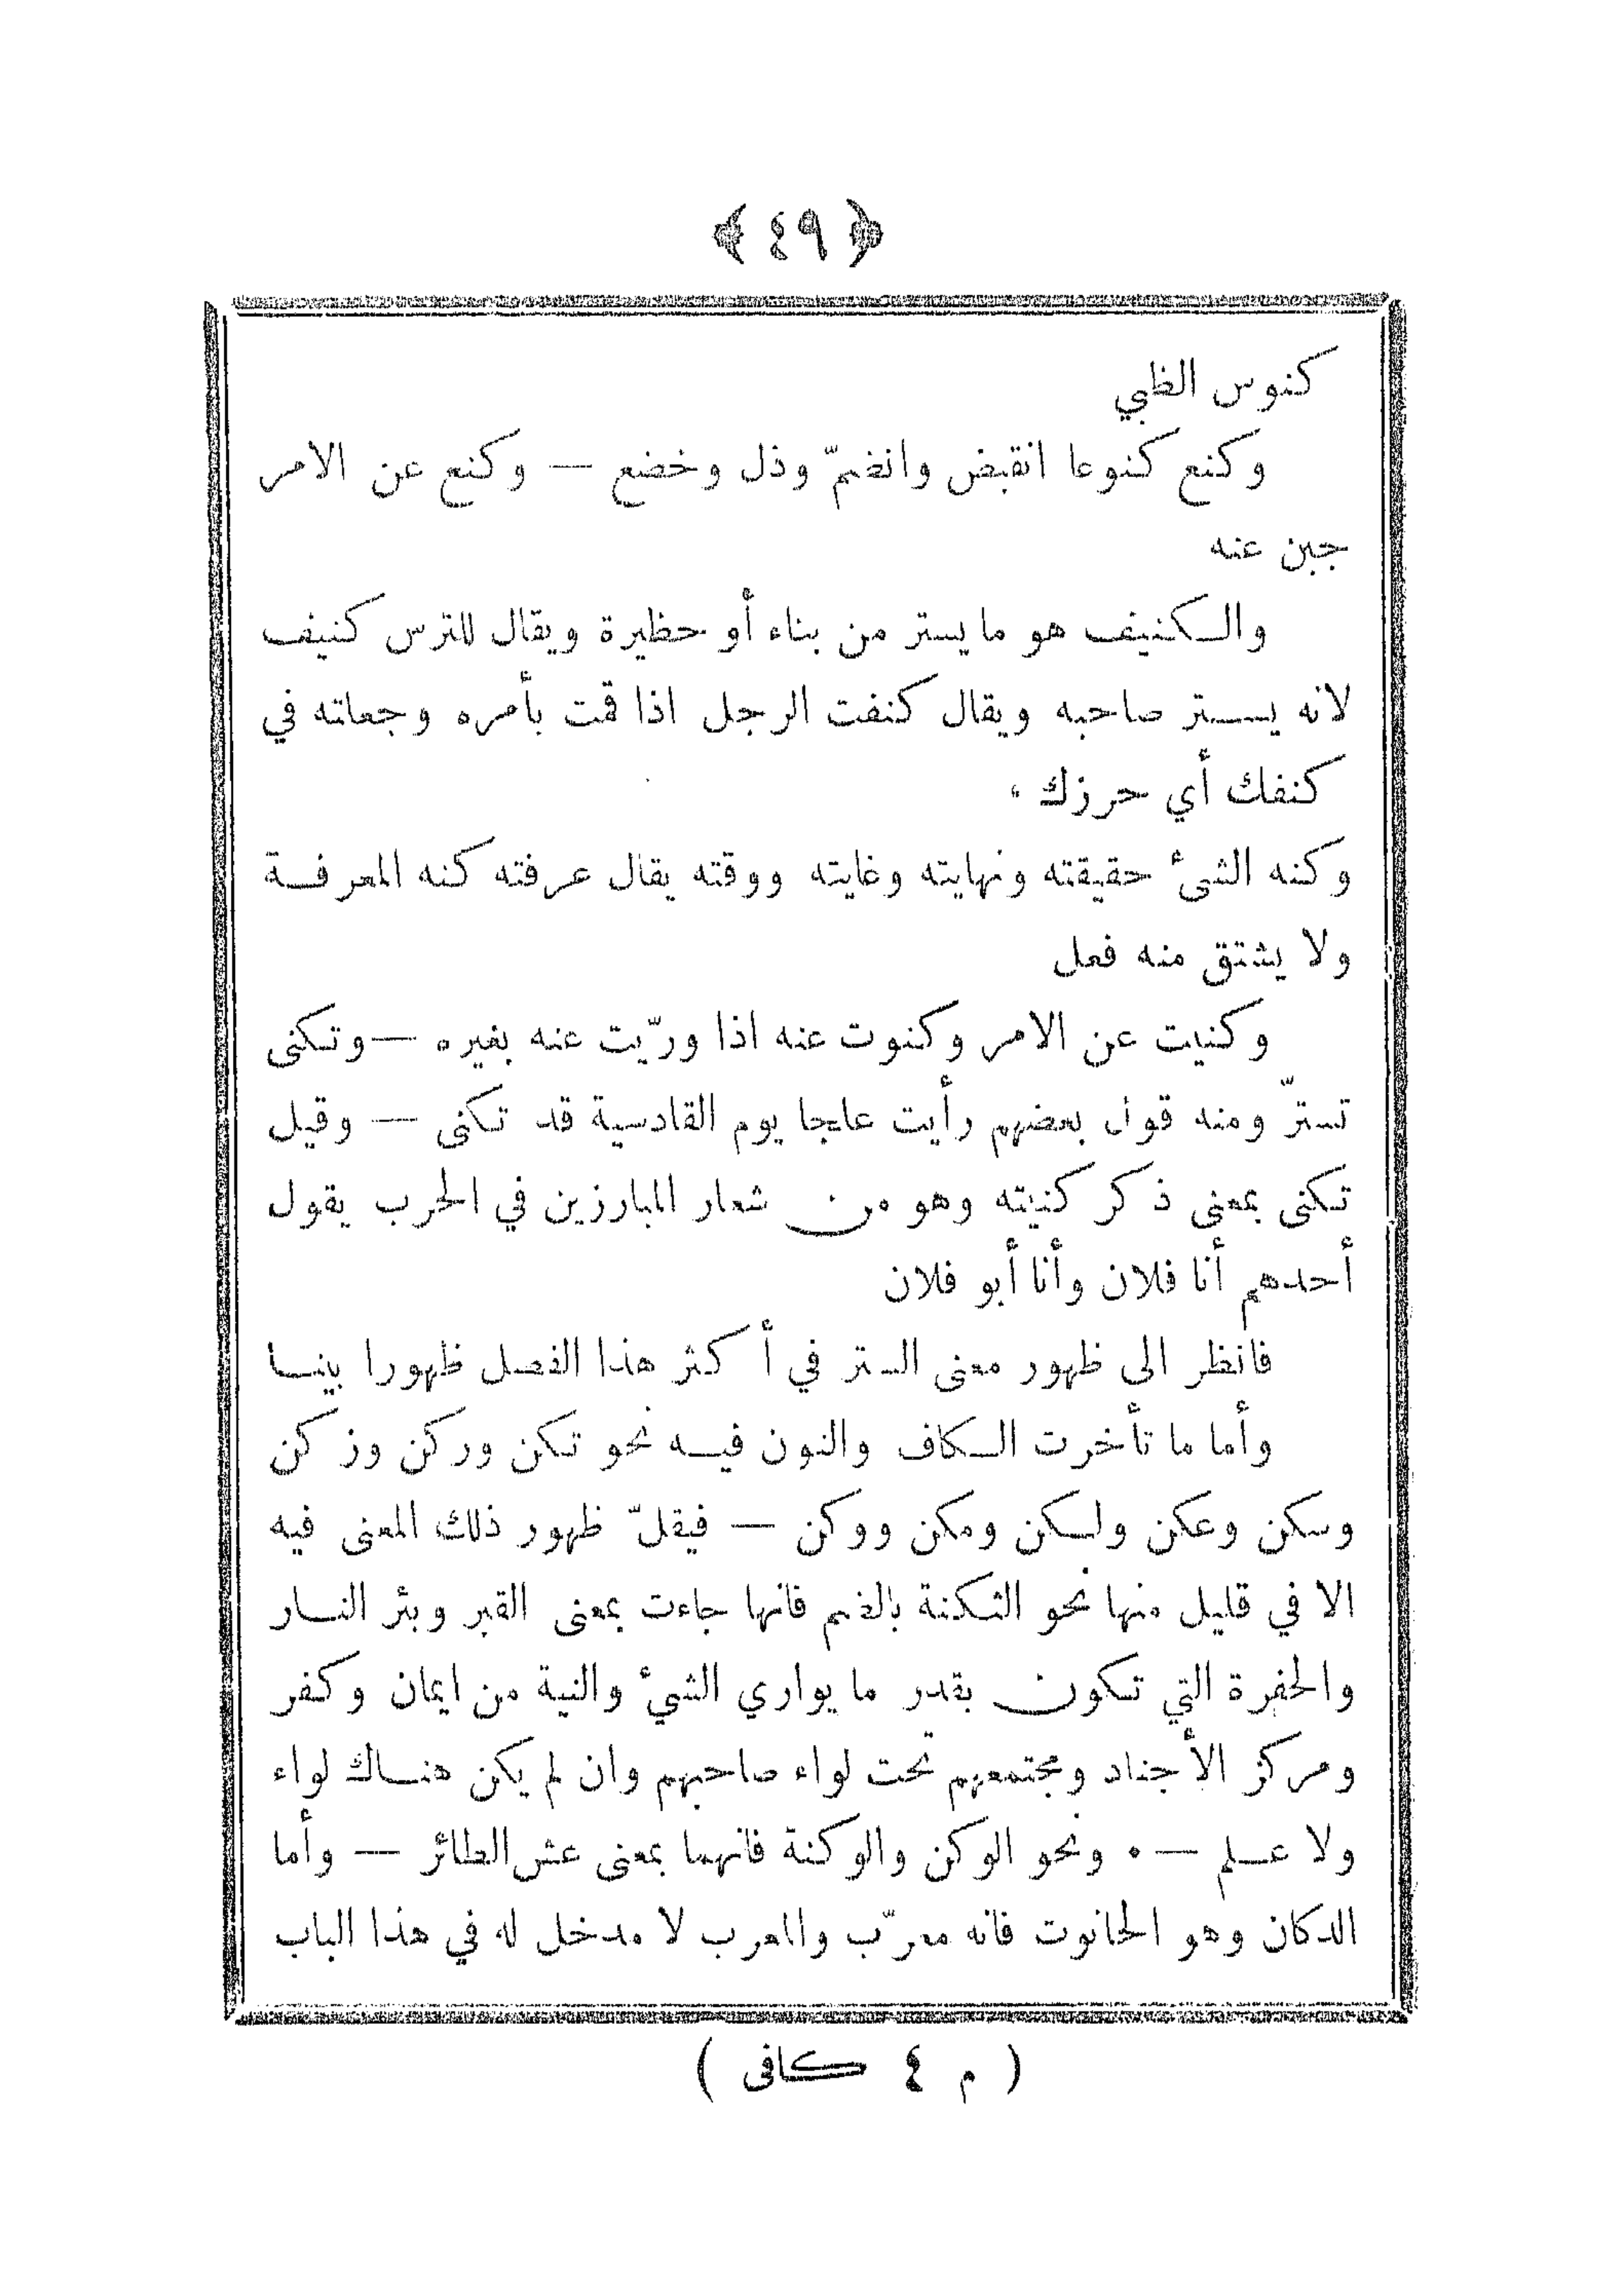 ﴿ ٤٩ ﴾
كنوس الظبي
وكنع كنوعا انقبض وانضمّ وذل وخضع — وكنع عن الامر
جبن عنه
والكنيف هو ما يستر من بناء أو حظيرة ويقال للترس كنيف
لانه يستر صاحبه ويقال كنفت الرجل اذا قمت بأمره وجعلته في
كنفك أي حرزك ،
وكنه الشئ حقيقته ونهايته وغايته ووقته يقال عرفته كنه المعرفة
ولا يشتق منه فعل
وكنيت عن الامر وكنوت عنه اذا ورّيت عنه بغيره — وتكنى
تستّر ومنه قول بعضهم رأيت علجا يوم القادسية قد تكنى — وقيل
تكنى بمعنى ذكر كنيته وهو من شعار المبارزين في الحرب يقول
أحدهم أنا فلان وأنا أبو فلان
فانظر الى ظهور معنى الستر في أكثر هذا الفصل ظهورا بينا
وأما ما تأخرت الكاف والنون فيه نحو تكن وركن وزكن
وسكن وعكن ولكن ومكن ووكن — فيقلّ ظهور ذلك المعنى فيه
الا في قليل منها نحو الثكنة بالضم فانها جاءت بمعنى القبر وبئر النار
والحفرة التي تكون بقدر ما يواري الشئ والنية من ايمان وكفر
ومركز الأجناد ومجتمعهم تحت لواء صاحبهم وان لم يكن هناك لواء
ولا علم — ٠ ونحو الوكن والوكنة فانهما بمعنى عش الطائر — وأما
الدكان وهو الحانوت فانه معرّب والمعرب لا مدخل له في هذا الباب
( م ٤ كافى )